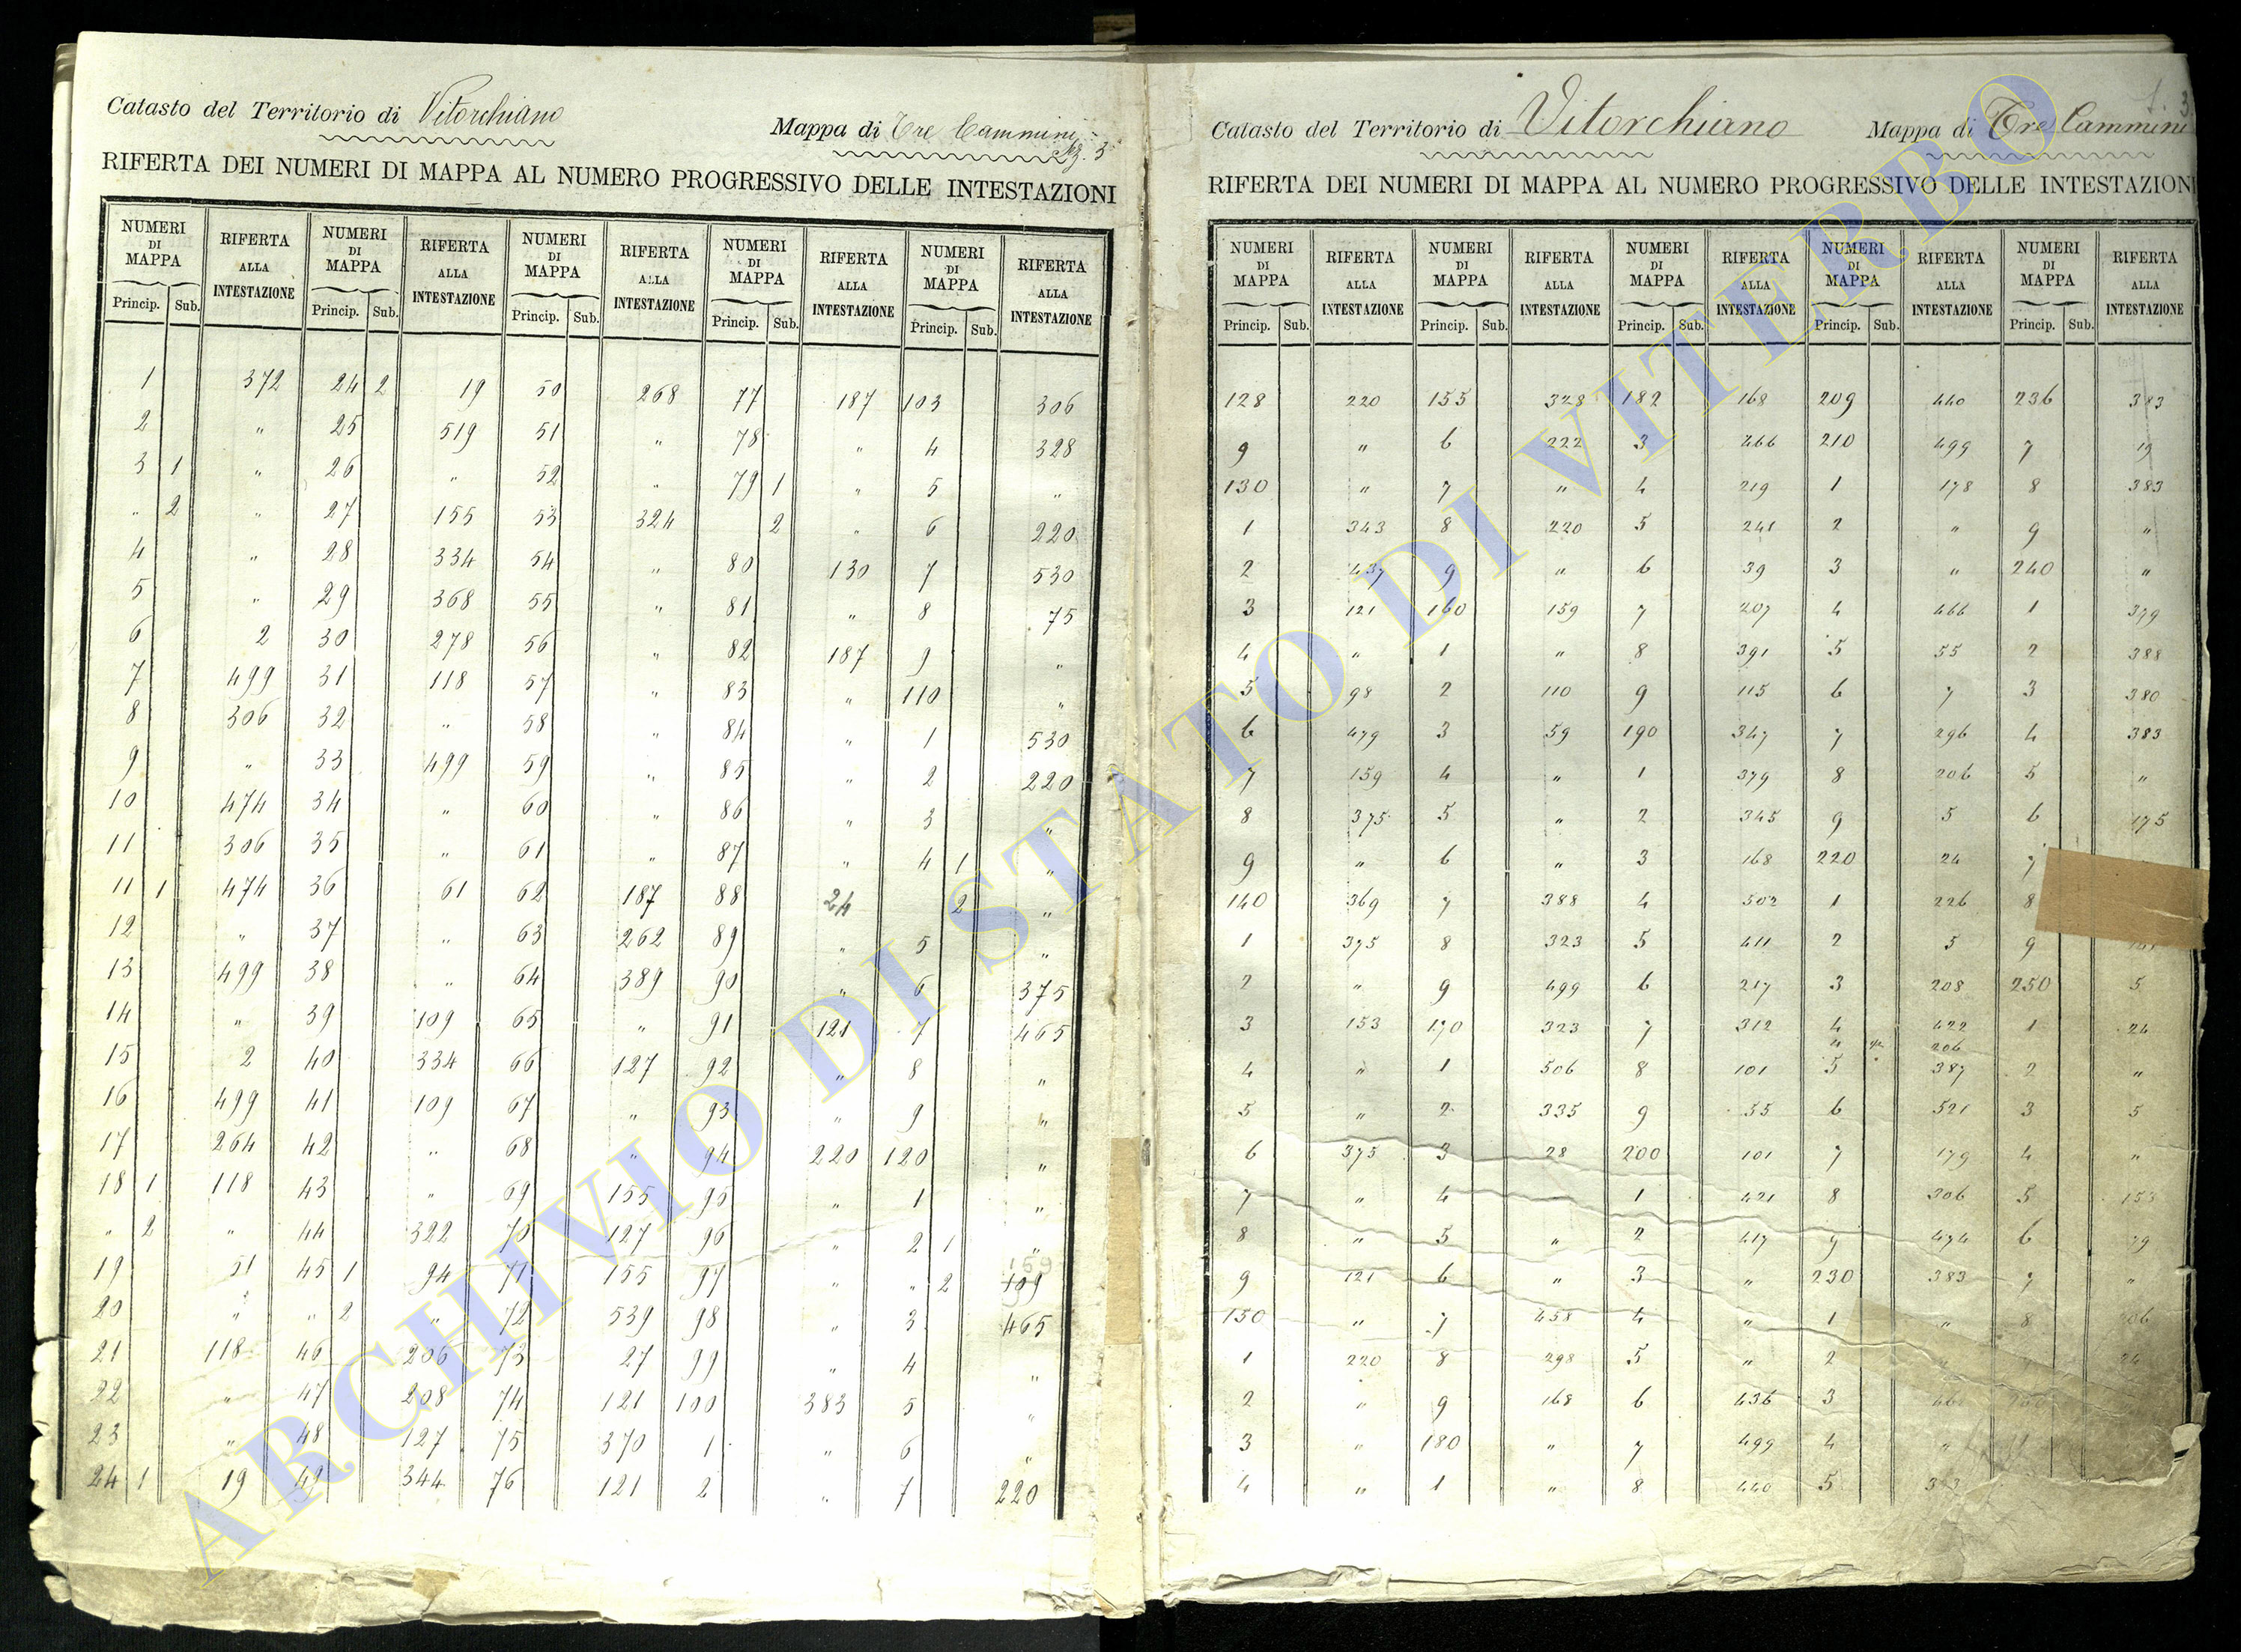 Catasto del Territorio di Vitorchiano Mappa di Tre Cammini
Sez. 3ª
RIFERTA DEI NUMERI DI MAPPA AL NUMERO PROGRESSIVO DELLE INTESTAZIONI
NUMERI DI MAPPA RIFERTA ALLA INTESTAZIONE NUMERI DI MAPPA RIFERTA ALLA INTESTAZIONE NUMERI DI MAPPA RIFERTA ALLA INTESTAZIONE NUMERI DI MAPPA RIFERTA ALLA INTESTAZIONE NUMERI DI MAPPA RIFERTA ALLA INTESTAZIONE
Princip. Sub. Princip. Sub. Princip. Sub. Princip. Sub. Princip. Sub.
1 372 24 2 19 50 268 77 187 103 306
2 " 25 519 51 " 78 " 4 328
3 1 " 26 " 52 " 79 1 " 5 "
" 2 " 27 155 53 324 2 " 6 220
4 " 28 334 54 " 80 130 7 530
5 " 29 368 55 " 81 " 8 75
6 2 30 278 56 " 82 187 9 "
7 499 31 118 57 " 83 " 110 "
8 306 32 " 58 " 84 " 1 530
9 " 33 499 59 " 85 " 2 220
10 474 34 " 60 " 86 " 3 "
11 306 35 " 61 " 87 " 4 1 "
11 1 474 36 61 62 187 88 24 2 "
12 " 37 " 63 262 89 " 5 "
13 499 38 " 64 389 90 " 6 375
14 " 39 109 65 " 91 121 7 465
15 2 40 334 66 127 92 " 8 "
16 499 41 109 67 " 93 " 9 "
17 264 42 " 68 " 94 220 120 "
18 1 118 43 " 69 155 95 " 1 "
" 2 " 44 322 70 127 96 " 2 1 "
19 51 45 1 94 71 155 97 " " 2 109
20 " " 2 " 72 539 98 " 3 465
21 118 46 206 73 27 99 " 4 "
22 " 47 208 74 121 100 383 5 "
23 " 48 127 75 370 1 " 6 "
24 1 19 49 344 76 121 2 " 7 220
Catasto del Territorio di Vitorchiano Mappa di Tre Cammini
RIFERTA DEI NUMERI DI MAPPA AL NUMERO PROGRESSIVO DELLE INTESTAZIONI
NUMERI DI MAPPA RIFERTA ALLA INTESTAZIONE NUMERI DI MAPPA RIFERTA ALLA INTESTAZIONE NUMERI DI MAPPA RIFERTA ALLA INTESTAZIONE NUMERI DI MAPPA RIFERTA ALLA INTESTAZIONE NUMERI DI MAPPA RIFERTA ALLA INTESTAZIONE
Princip. Sub. Princip. Sub. Princip. Sub. Princip. Sub. Princip. Sub.
128 220 155 328 182 168 209 440 236 383
9 " 6 222 3 466 210 499 7 19
130 " 7 " 4 219 1 178 8 383
1 343 8 220 5 241 2 " 9 "
2 437 9 " 6 39 3 " 240 "
3 121 160 159 7 207 4 466 1 379
4 " 1 " 8 391 5 55 2 388
5 98 2 110 9 115 6 7 3 380
6 479 3 59 190 347 7 296 4 383
7 159 4 " 1 379 8 206 5 "
8 375 5 " 2 345 9 5 6 175
9 " 6 " 3 168 220 24 7
140 369 7 388 4 502 1 226 8
1 375 8 323 5 411 2 5 9
2 " 9 499 6 217 3 208 250 5
3 153 170 323 7 312 4 422 1 24
" 206
4 " 1 506 8 101 5 387 2 "
5 " 2 335 9 55 6 521 3 5
6 375 3 28 200 101 7 179 4 "
7 " 4 " 1 421 8 306 5 153
8 " 5 " 2 417 9 474 6
9 121 6 " 3 " 230 383 7 "
150 " 7 458 4 " 1 " 8
1 220 8 298 5 " 2
2 " 9 168 6 436 3
3 " 180 " 7 499 4 "
4 " 1 " 8 440 5
ARCHIVIO DI STATO DI VITERBO